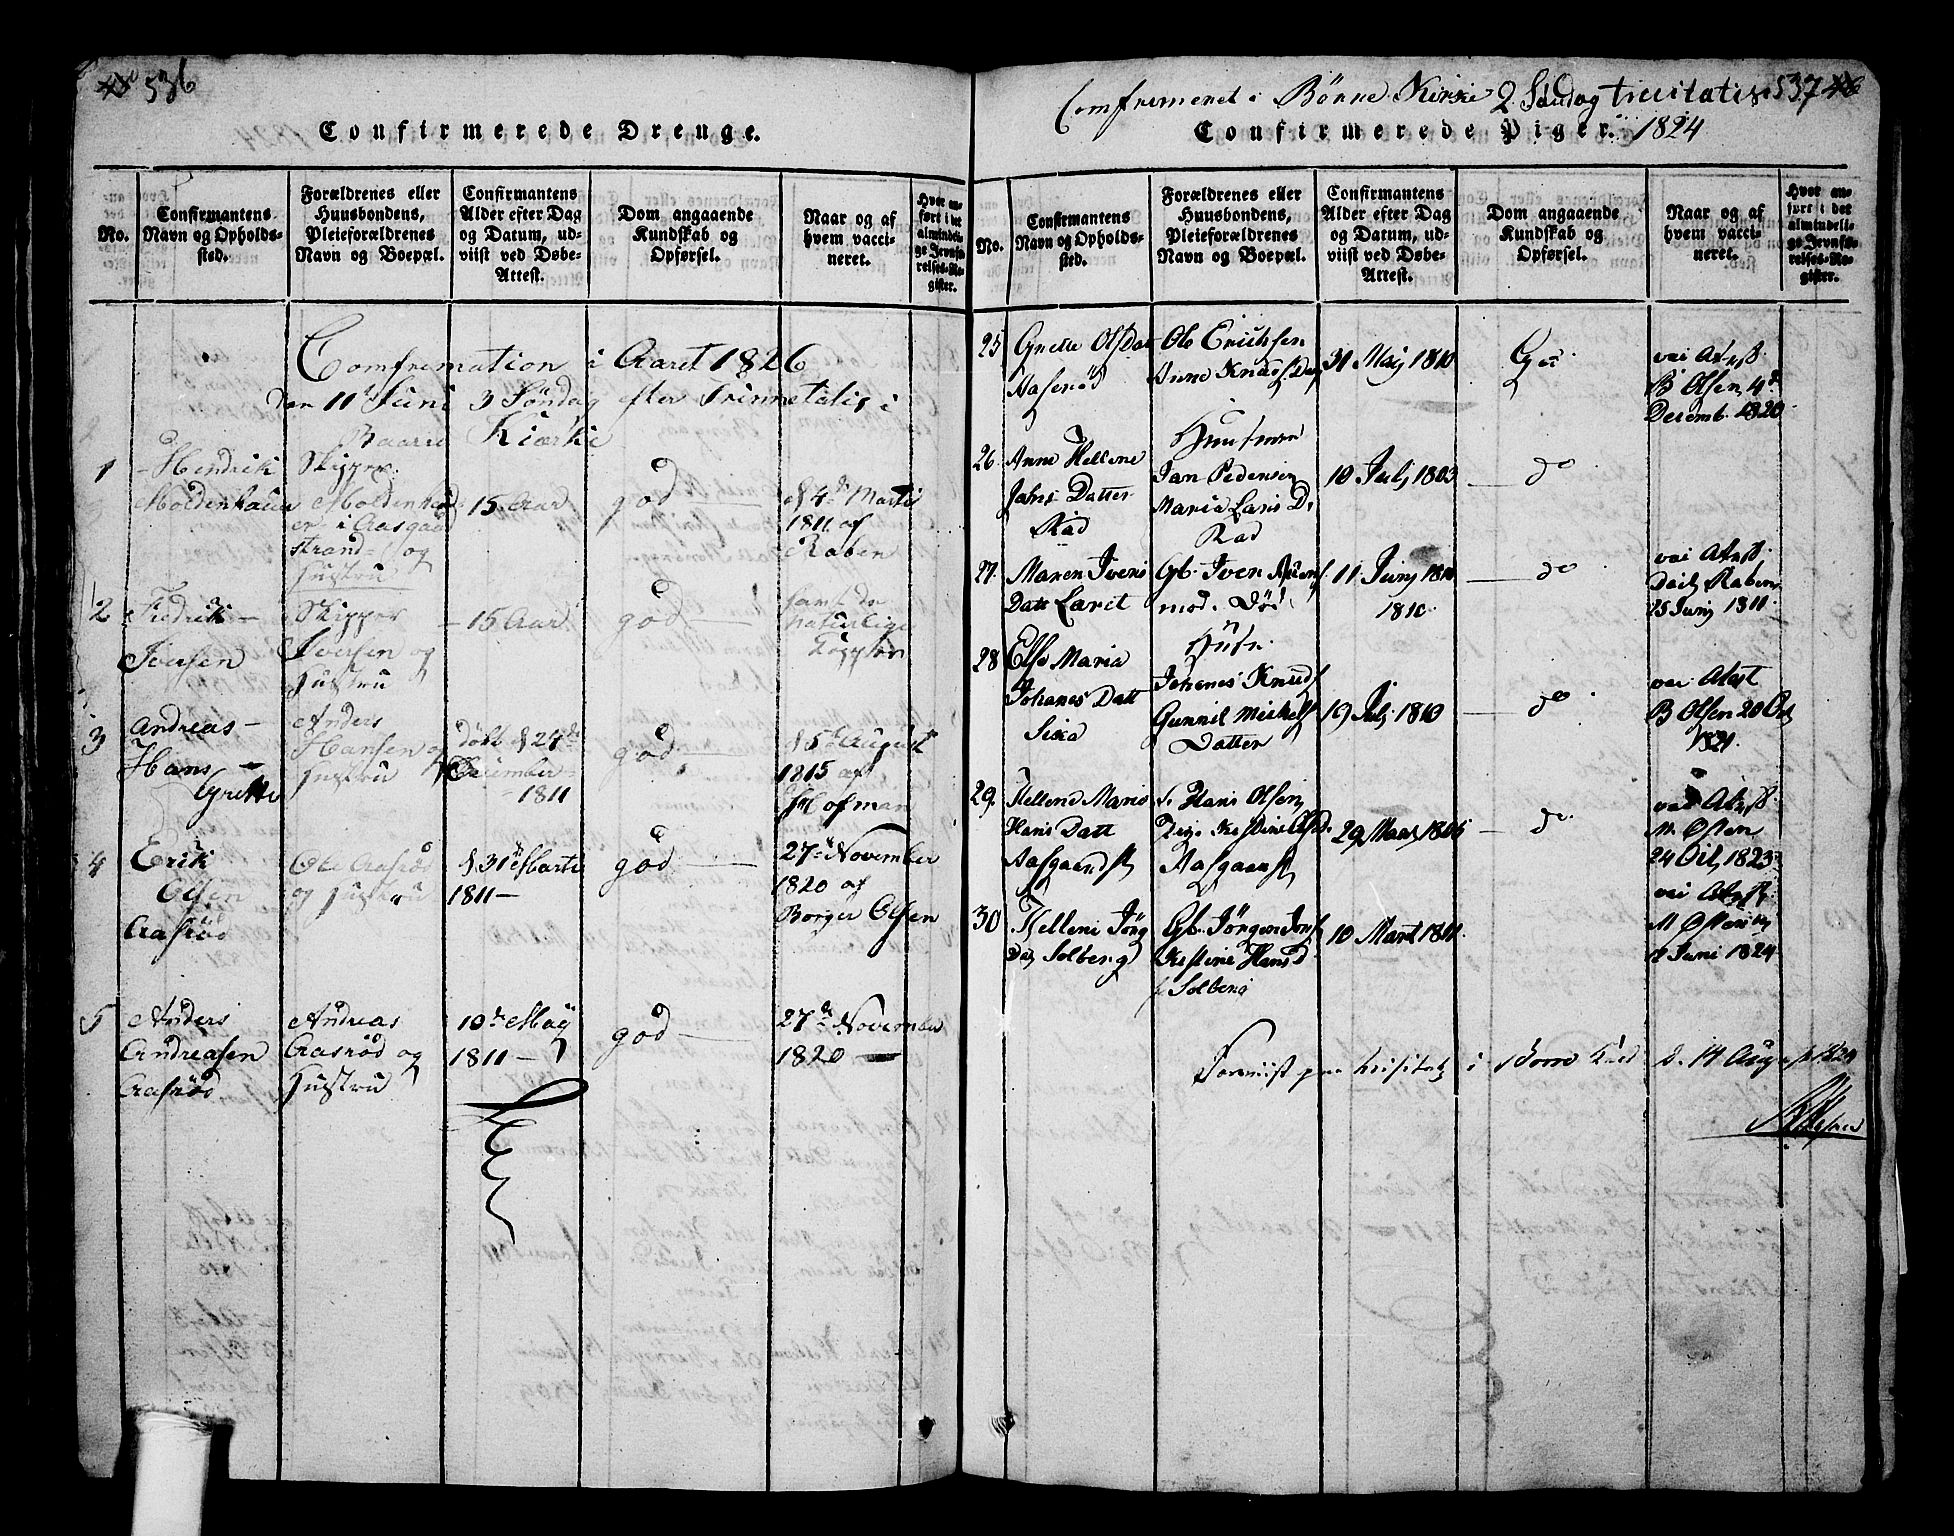 536
Confirmerede Drenge.
No.
Confirmantens
Navn og Opholds-
sted.
Forældrenes eller
Huusbondens,
Pleieforældrenes
Navn og Boepæl.
Confirmantens
Alder efter Dag
og Datum, ud-
viist ved Døbe-
Attest.
Dom angaaende
Kundskab og
Opførsel.
Naar og af
hvem vacci-
neret.
Hvor an-
ført i det
almindeli-
ge Jevnfø-
relses-Re-
gister.
Comfremation i Aaret 1826
den 11te Juni 3 Søndag efter Trinnetatis i
Baarre Kiærke
1
Hendrik
Moldenhauer
Skipper
Moldenhau
er i Aasgaard
strand og
Hustru
15 Aar
god
d 4de Marti
1811 af
Raben
2
Fredrik
Iversen
Skipper
Iversen og
Hustru
15 Aar
god
naturlige
Kopper
3
Andreas
Hans
Grette
Anders
Hansen og
Hustru
døbt d 24de
December
1811
god
d 5te August
1815 af
Hofman
4
Erik
Olsen
Aasrød
Ole Aasrød
og Hustru
d 31te Marti
1811
god
27de November
1820 af
Borger Olsen
5
Anders
Andreasen
Aasrød
Andreas
Aasrød og
Hustru
10de May
1811
god
27de November
1820
Comfremeret i Börre Kirke 2 Søndag trinitatis 537
Confirmerede Piger. 1824
No.
Confirmantens
Navn og Opholds-
sted.
Forældrenes eller
Huusbondens,
Pleieforældrenes
Navn og Boepæl.
Confirmantens
Alder efter Dag
og Datum, ud-
viist ved Døbe-
Attest.
Dom angaaende
Kundskab og
Opførsel.
Naar og af
hvem vacci-
neret.
Hvor an-
ført i det
almindeli-
ge Jevnfø-
relses-Re-
gister.
25
Grette Olsdat
Aaserød
Ole Erichsen
Anne Knuds Dat
31 Maij 1810
God
vai Atest
B Olsen 4de
Decemb. 1820
26
Anne Hellene
Jahns Datter
Rad
Huusman
Jan Pedersen
Maria Lars D.
Rad
10 Julj 1803
do
27
Maren Ivers
Datt
Gb. Iver
mod. Död
11 Junj 1810
1810
do
vai Atest
Raben
25 Junj 1811
28
Else Maria
Johanes Datt
Huusm.
Johanes Knuds
Gunnil Mickels
Datter
19 Julj 1810
do
vai Atest
B Olsen 20 Oct
1821
29
Hellene Maria
Hans Datt
Aasgaardst
Hans Olsen
Aasgaarst
29 Mars 1806
do
vai Atest
M Østen
1823
30
Hellene Jörg
Dat Solberg
Gb. Jörgen
Kestine Hansd
Solberg
10 Mart 1811
vai Atest
M Østen
Juni 1824
Foreviist paa Visitatz i Borre d. 14 August 1824